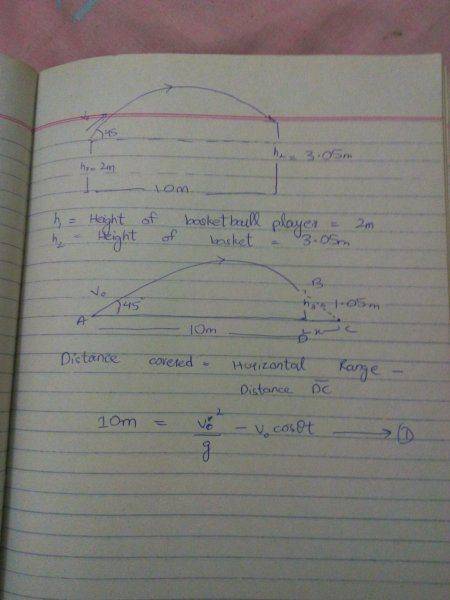 V₀
45
h₁ = 2m
h₂ = 3.05m
10m
h₁ = Height of basketball player = 2m
h₂ = Height of basket = 3.05m
B
V₀
45°
1.05m
A
10m
D
x
C
Distance covered = Horizontal Range –
Distance DC
10m = V₀²/g – V₀ cosθt ⟶ ①